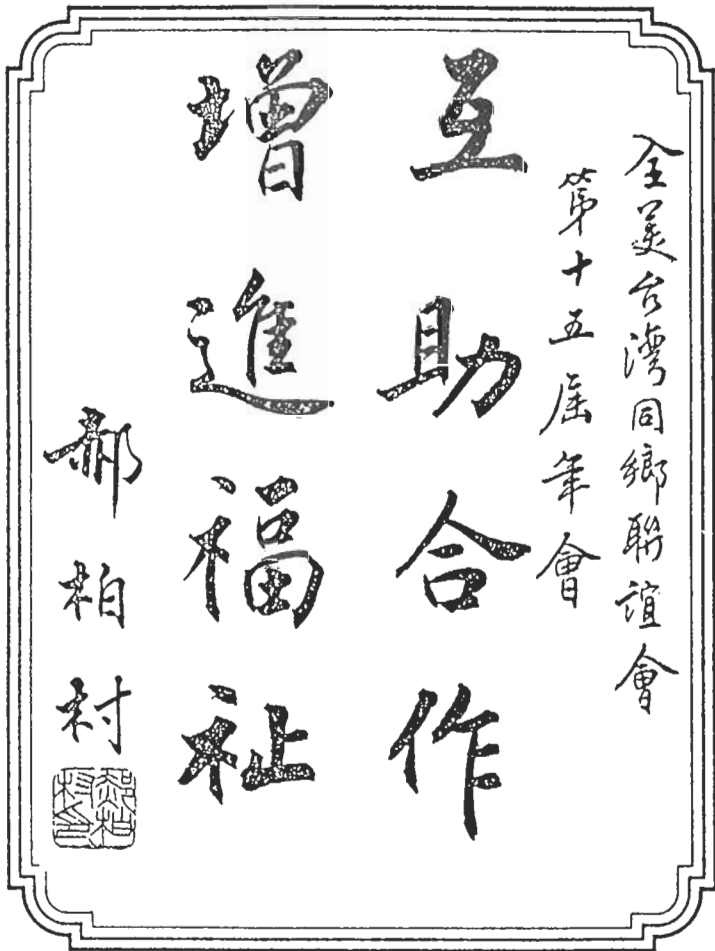 全美台灣同鄉聯誼會
第十五屆年會
互助合作
增進福祉
郝柏村
郝柏村印